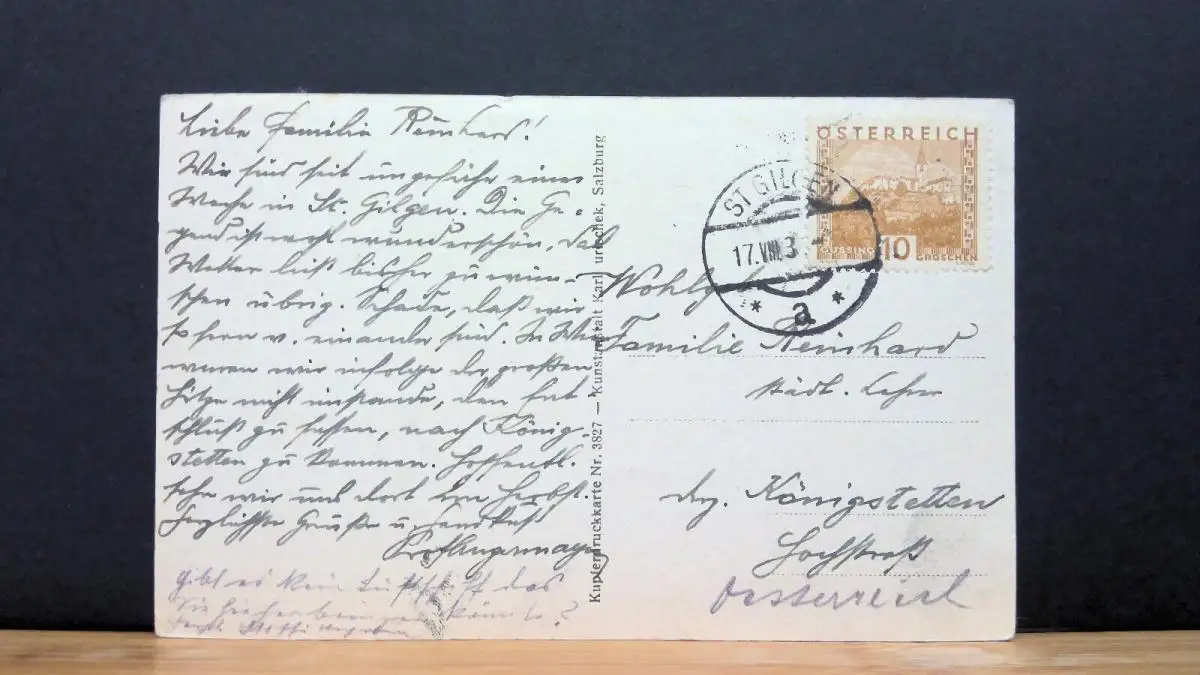 Liebe Familie Reinhard!
Wir sind seit ungefähr einer
Woche in St. Gilgen. Die Ge-
gend ist wohl wunderschön, das
Wetter ließ bisher zu wün-
schen übrig. Schade, daß wir
so fern v. einander sind. In Wien
waren wir infolge der großen
Hitze nicht imstande, den Ent-
schluß zu fassen, nach König-
stetten zu kommen. Hoffentl.
sehn wir uns dort im Herbst.
Herzlichste Grüße u. Handkuß
gibt es kein Luftschiff das
Sie hieherbringen könnte?
Kupferdruckkarte Nr. 3827 — Kunstanstalt Karl Jurischek, Salzburg
ÖSTERREICH
GÜSSING
10
GROSCHEN
ST GILGEN
17.VIII.3
* a *
Familie Reinhard
städt. Lehrer
Königstetten
Hochstraß
Oesterreich